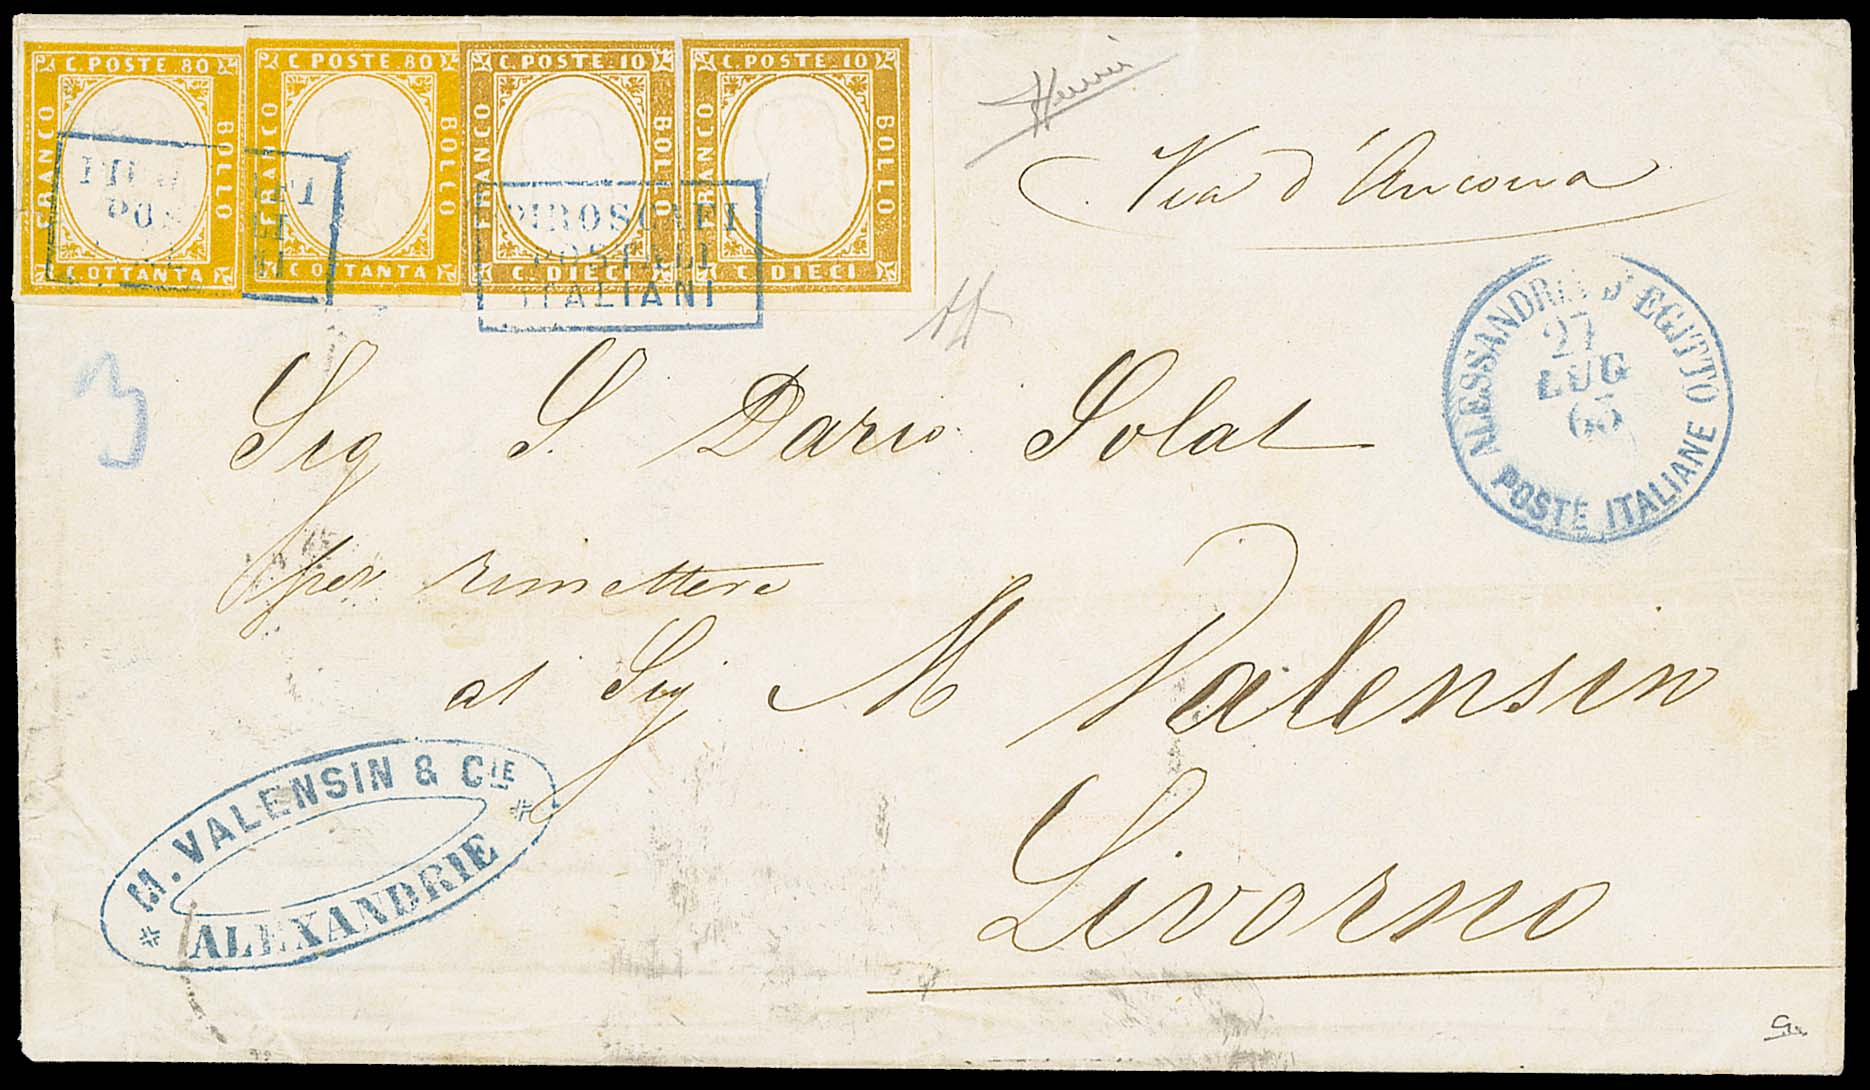 C. POSTE. 80
FRANCO
BOLLO
C. OTTANTA
C. POSTE. 80
FRANCO
BOLLO
C. OTTANTA
C. POSTE. 10
FRANCO
BOLLO
C. DIECI
C. POSTE. 10
FRANCO
BOLLO
C. DIECI
PIROSCAFI
POSTALI
ITALIANI
Via d'Ancona
ALESSANDRIA D'EGITTO
27
LUG
63
POSTE ITALIANE
3
Sig S. Dario Solal
per rimettere
al Sig M Valensin
Livorno
M. VALENSIN & CIE
ALEXANDRIE